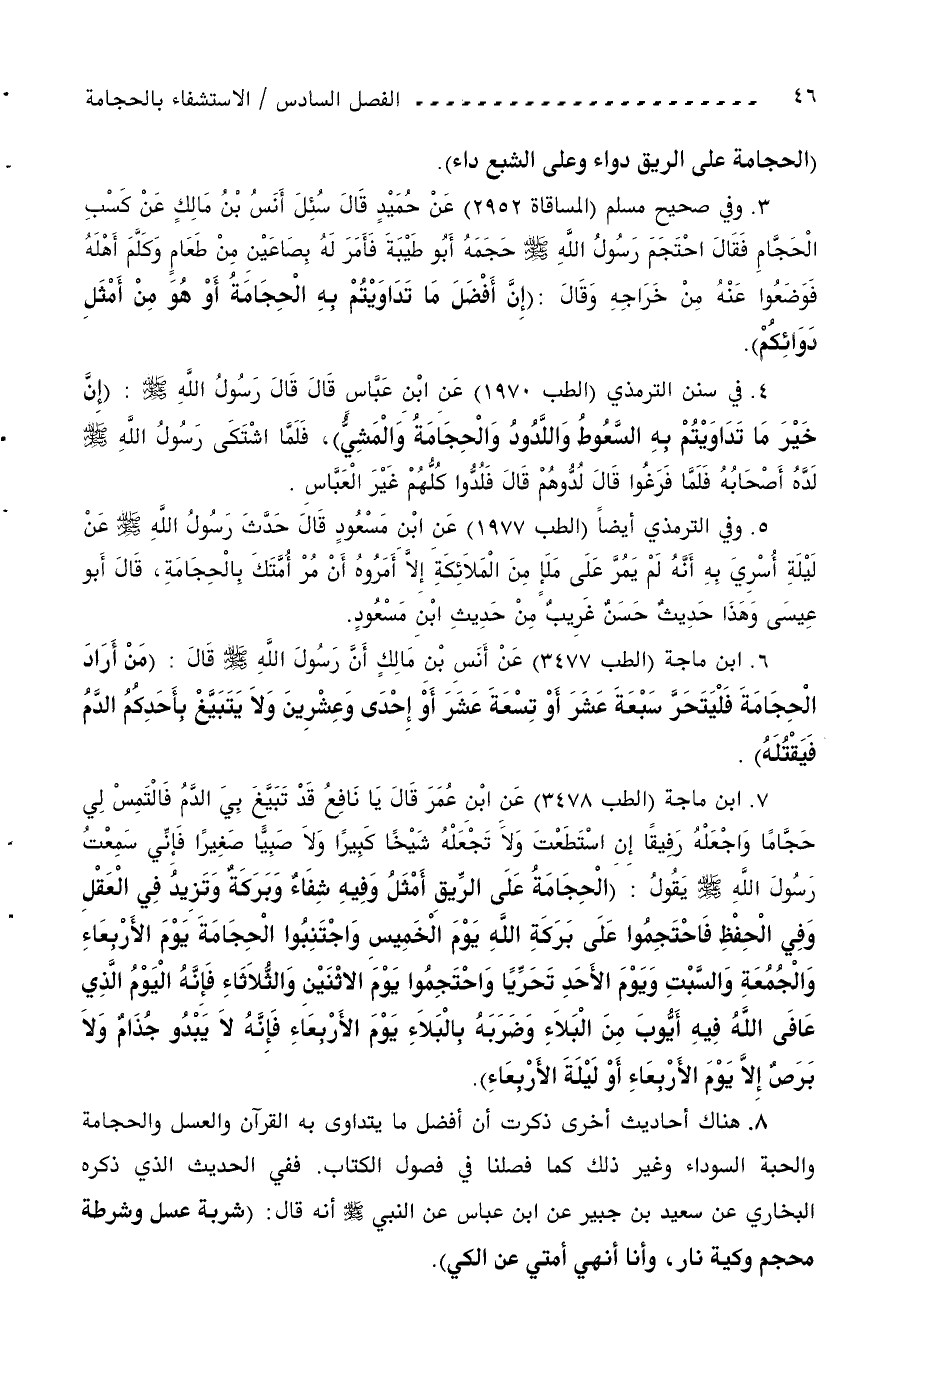 ٤٦ ‏- - - - - - - - - - - - - - - - - - - - - - الفصل السادس / الاستشفاء بالحجامة
(الحجامة على الريق دواء وعلى الشبع داء).
٣. وفي صحيح مسلم (المساقاة ٢٩٥٢) عَنْ حُمَيْدٍ قَالَ سُئِلَ أَنَسُ بْنُ مَالِكٍ عَنْ كَسْبِ
الْحَجَّامِ فَقَالَ احْتَجَمَ رَسُولُ اللَّهِ ﷺ حَجَمَهُ أَبُو طَيْبَةَ فَأَمَرَ لَهُ بِصَاعَيْنِ مِنْ طَعَامٍ وَكَلَّمَ أَهْلَهُ
فَوَضَعُوا عَنْهُ مِنْ خَرَاجِهِ وَقَالَ :(إِنَّ أَفْضَلَ مَا تَدَاوَيْتُمْ بِهِ الْحِجَامَةُ أَوْ هُوَ مِنْ أَمْثَلِ
دَوَائِكُمْ).
٤. في سنن الترمذي (الطب ١٩٧٠) عَنِ ابْنِ عَبَّاسٍ قَالَ قَالَ رَسُولُ اللَّهِ ﷺ : (إِنَّ
خَيْرَ مَا تَدَاوَيْتُمْ بِهِ السَّعُوطُ وَاللَّدُودُ وَالْحِجَامَةُ وَالْمَشِيُّ)، فَلَمَّا اشْتَكَى رَسُولُ اللَّهِ ﷺ
لَدَّهُ أَصْحَابُهُ فَلَمَّا فَرَغُوا قَالَ لُدُّوهُمْ قَالَ فَلُدُّوا كُلُّهُمْ غَيْرَ الْعَبَّاسِ .
٥. وفي الترمذي أيضاً (الطب ١٩٧٧) عَنِ ابْنِ مَسْعُودٍ قَالَ حَدَّثَ رَسُولُ اللَّهِ ﷺ عَنْ
لَيْلَةِ أُسْرِيَ بِهِ أَنَّهُ لَمْ يَمُرَّ عَلَى مَلَإٍ مِنَ الْمَلَائِكَةِ إِلاَّ أَمَرُوهُ أَنْ مُرْ أُمَّتَكَ بِالْحِجَامَةِ، قَالَ أَبو
عِيسَى وَهَذَا حَدِيثٌ حَسَنٌ غَرِيبٌ مِنْ حَدِيثِ ابْنِ مَسْعُودٍ.
٦. ابن ماجة (الطب ٣٤٧٧) عَنْ أَنَسِ بْنِ مَالِكٍ أَنَّ رَسُولَ اللَّهِ ﷺ قَالَ : (مَنْ أَرَادَ
الْحِجَامَةَ فَلْيَتَحَرَّ سَبْعَةَ عَشَرَ أَوْ تِسْعَةَ عَشَرَ أَوْ إِحْدَى وَعِشْرِينَ وَلاَ يَتَبَيَّغْ بِأَحَدِكُمُ الدَّمُ
فَيَقْتُلَهُ) .
٧. ابن ماجة (الطب ٣٤٧٨) عَنِ ابْنِ عُمَرَ قَالَ يَا نَافِعُ قَدْ تَبَيَّغَ بِيَ الدَّمُ فَالْتَمِسْ لِي
حَجَّامًا وَاجْعَلْهُ رَفِيقًا إِنِ اسْتَطَعْتَ وَلاَ تَجْعَلْهُ شَيْخًا كَبِيرًا وَلاَ صَبِيًّا صَغِيرًا فَإِنِّي سَمِعْتُ
رَسُولَ اللَّهِ ﷺ يَقُولُ : (الْحِجَامَةُ عَلَى الرِّيقِ أَمْثَلُ وَفِيهِ شِفَاءٌ وَبَرَكَةٌ وَتَزِيدُ فِي الْعَقْلِ
وَفِي الْحِفْظِ فَاحْتَجِمُوا عَلَى بَرَكَةِ اللَّهِ يَوْمَ الْخَمِيسِ وَاجْتَنِبُوا الْحِجَامَةَ يَوْمَ الأَرْبِعَاءِ
وَالْجُمُعَةِ وَالسَّبْتِ وَيَوْمَ الأَحَدِ تَحَرِّيًا وَاحْتَجِمُوا يَوْمَ الاثْنَيْنِ وَالثُّلاَثَاءِ فَإِنَّهُ الْيَوْمُ الَّذِي
عَافَى اللَّهُ فِيهِ أَيُّوبَ مِنَ الْبَلاَءِ وَضَرَبَهُ بِالْبَلاَءِ يَوْمَ الأَرْبِعَاءِ فَإِنَّهُ لاَ يَبْدُو جُذَامٌ وَلاَ
بَرَصٌ إِلاَّ يَوْمَ الأَرْبِعَاءِ أَوْ لَيْلَةَ الأَرْبِعَاءِ).
٨. هناك أحاديث أخرى ذكرت أن أفضل ما يتداوى به القرآن والعسل والحجامة
والحبة السوداء وغير ذلك كما فصلنا في فصول الكتاب. ففي الحديث الذي ذكره
البخاري عن سعيد بن جبير عن ابن عباس عن النبي ﷺ أنه قال: (شربة عسل وشرطة
محجم وكية نار، وأنا أنهي أمتي عن الكي).